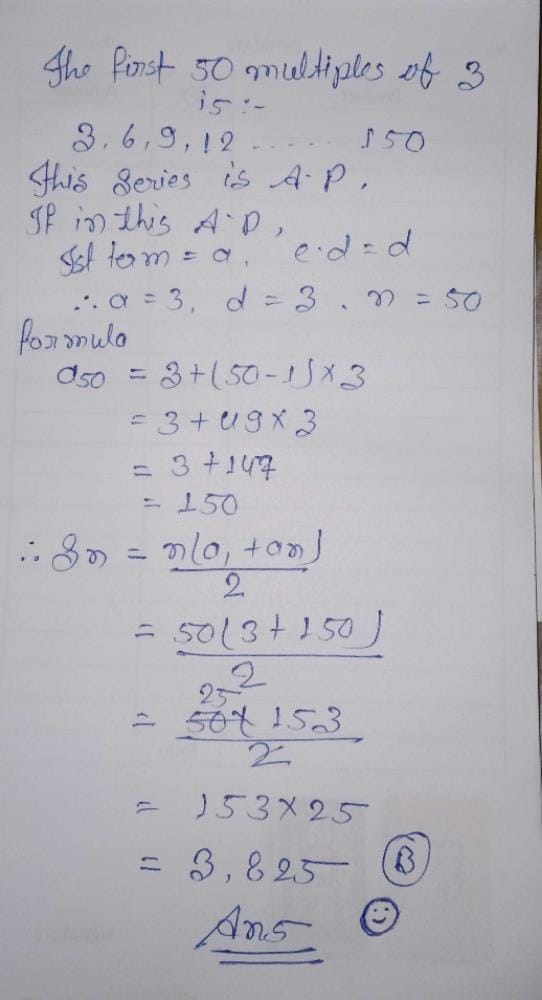 The first 50 multiples of 3
is :-
3, 6, 9, 12 ...... 150
This Series is A.P.
If in this A.P,
Ist term = a, c.d = d
∴ a = 3, d = 3, n = 50
formula
a50 = 3+(50-1)×3
= 3+49×3
= 3+147
= 150
∴ Sn = n(a1+an)
2
= 50(3+150)
2
25
= 50×153
2
= 153×25
= 3,825 B
Ans